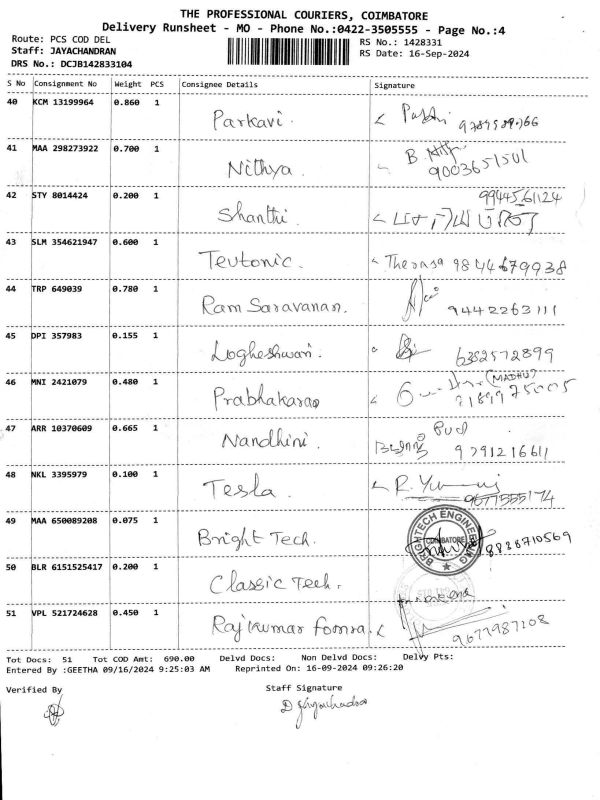 THE PROFESSIONAL COURIERS, COIMBATORE
Delivery Runsheet - MO - Phone No.:0422-3505555 - Page No.:4
Route: PCS COD DEL RS No.: 1428331
Staff: JAYACHANDRAN RS Date: 16-Sep-2024
DRS No.: DCJB142833104
S No Consignment No Weight PCS Consignee Details Signature
40 KCM 13199964 0.860 1 Parkavi.
41 MAA 298273922 0.700 1 Nithya. 9003651501
42 STY 8014424 0.200 1 Shanthi. 9944561124
43 SLM 354621947 0.600 1 Teutonic. Theresa 9844679938
44 TRP 649039 0.780 1 Ram Saravanan. 9442263111
45 DPI 357983 0.155 1 Logheshwari. 6382572899
46 MNI 2421079 0.480 1 Prabhakarao (MADHU)
47 ARR 10370609 0.665 1 Nandhini. 9791216611
48 NKL 3395979 0.100 1 Tesla. 9677555174
49 MAA 650089208 0.075 1 Bright Tech. BRIGHTECH ENGINEERING COIMBATORE 8838710569
50 BLR 6151525417 0.200 1 Classic Tech.
51 VPL 521724628 0.450 1 Rajkumar 9677987108
Tot Docs: 51 Tot COD Amt: 690.00 Delvd Docs: Non Delvd Docs: Delvy Pts:
Entered By :GEETHA 09/16/2024 9:25:03 AM Reprinted On: 16-09-2024 09:26:20
Verified By Staff Signature